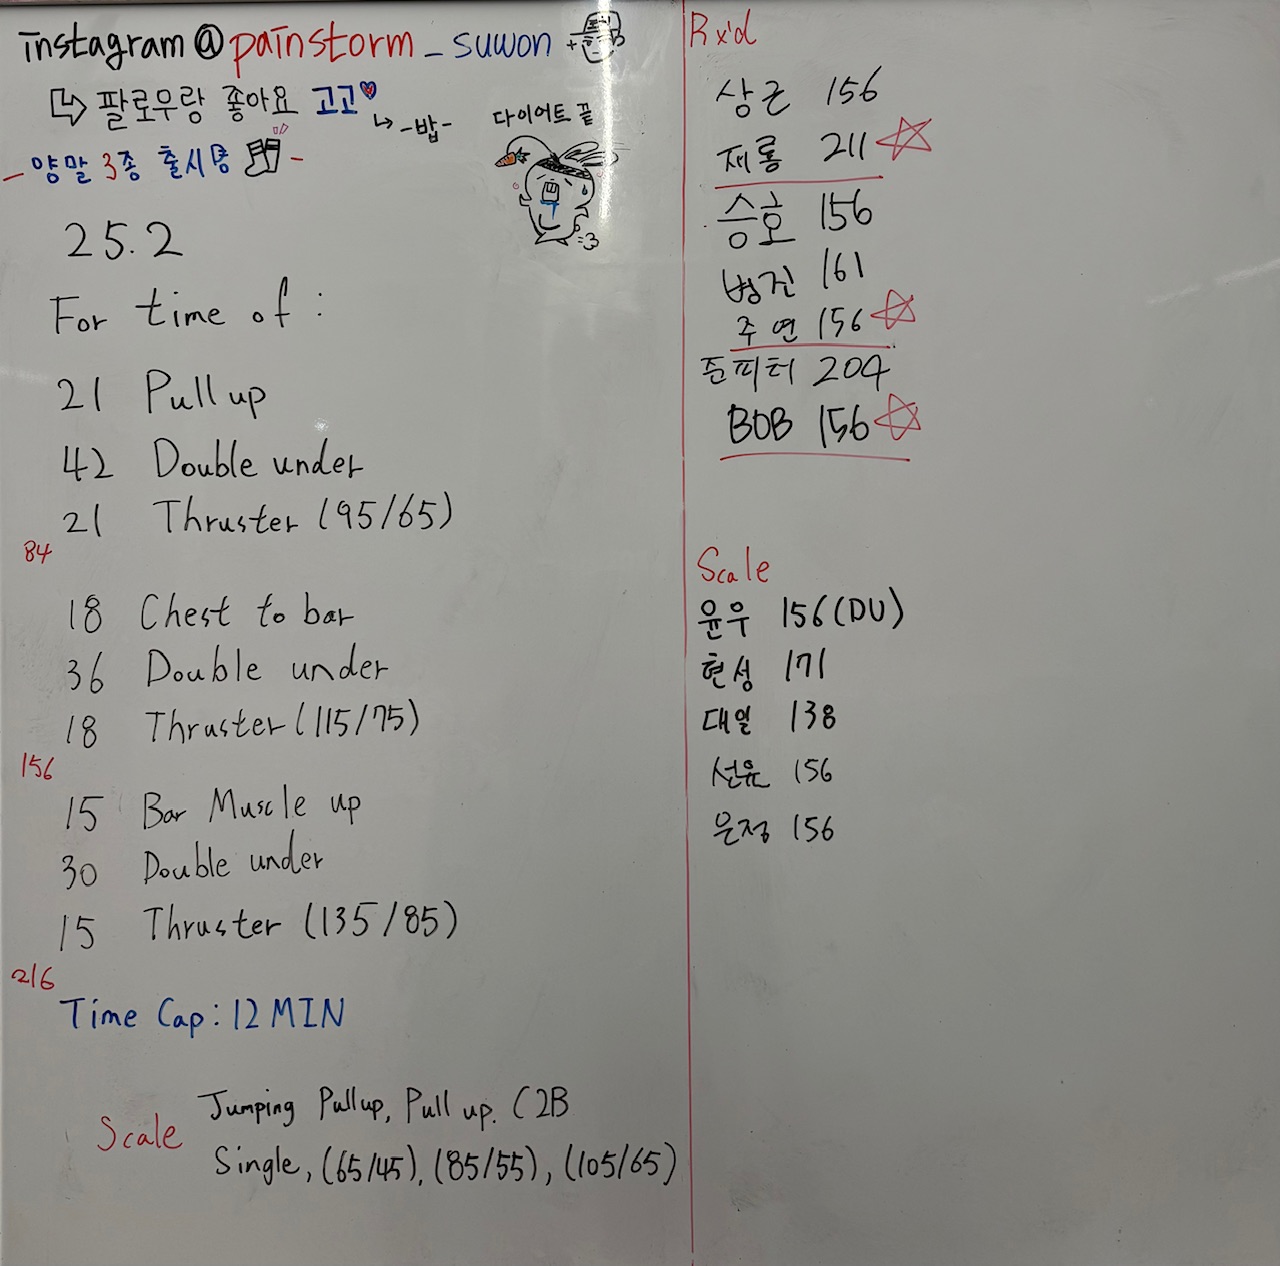 instagram@painstorm_suwon
팔로우랑 좋아요 고고
-밥-
다이어트 끝
- 양말 3종 출시중 -
25.2
For time of :
21 Pull up
42 Double under
21 Thruster (95/65)
84
18 Chest to bar
36 Double under
18 Thruster (115/75)
156
15 Bar Muscle up
30 Double under
15 Thruster (135/85)
216
Time Cap: 12 MIN
Scale Jumping Pullup, Pull up. C2B
Single, (65/45), (85/55), (105/65)
Rx'd
상근 156
재롱 211
승호 156
병진 161
주연 156
준피터 204
BOB 156
Scale
윤우 156(DU)
현성 171
대일 138
선윤 156
은정 156